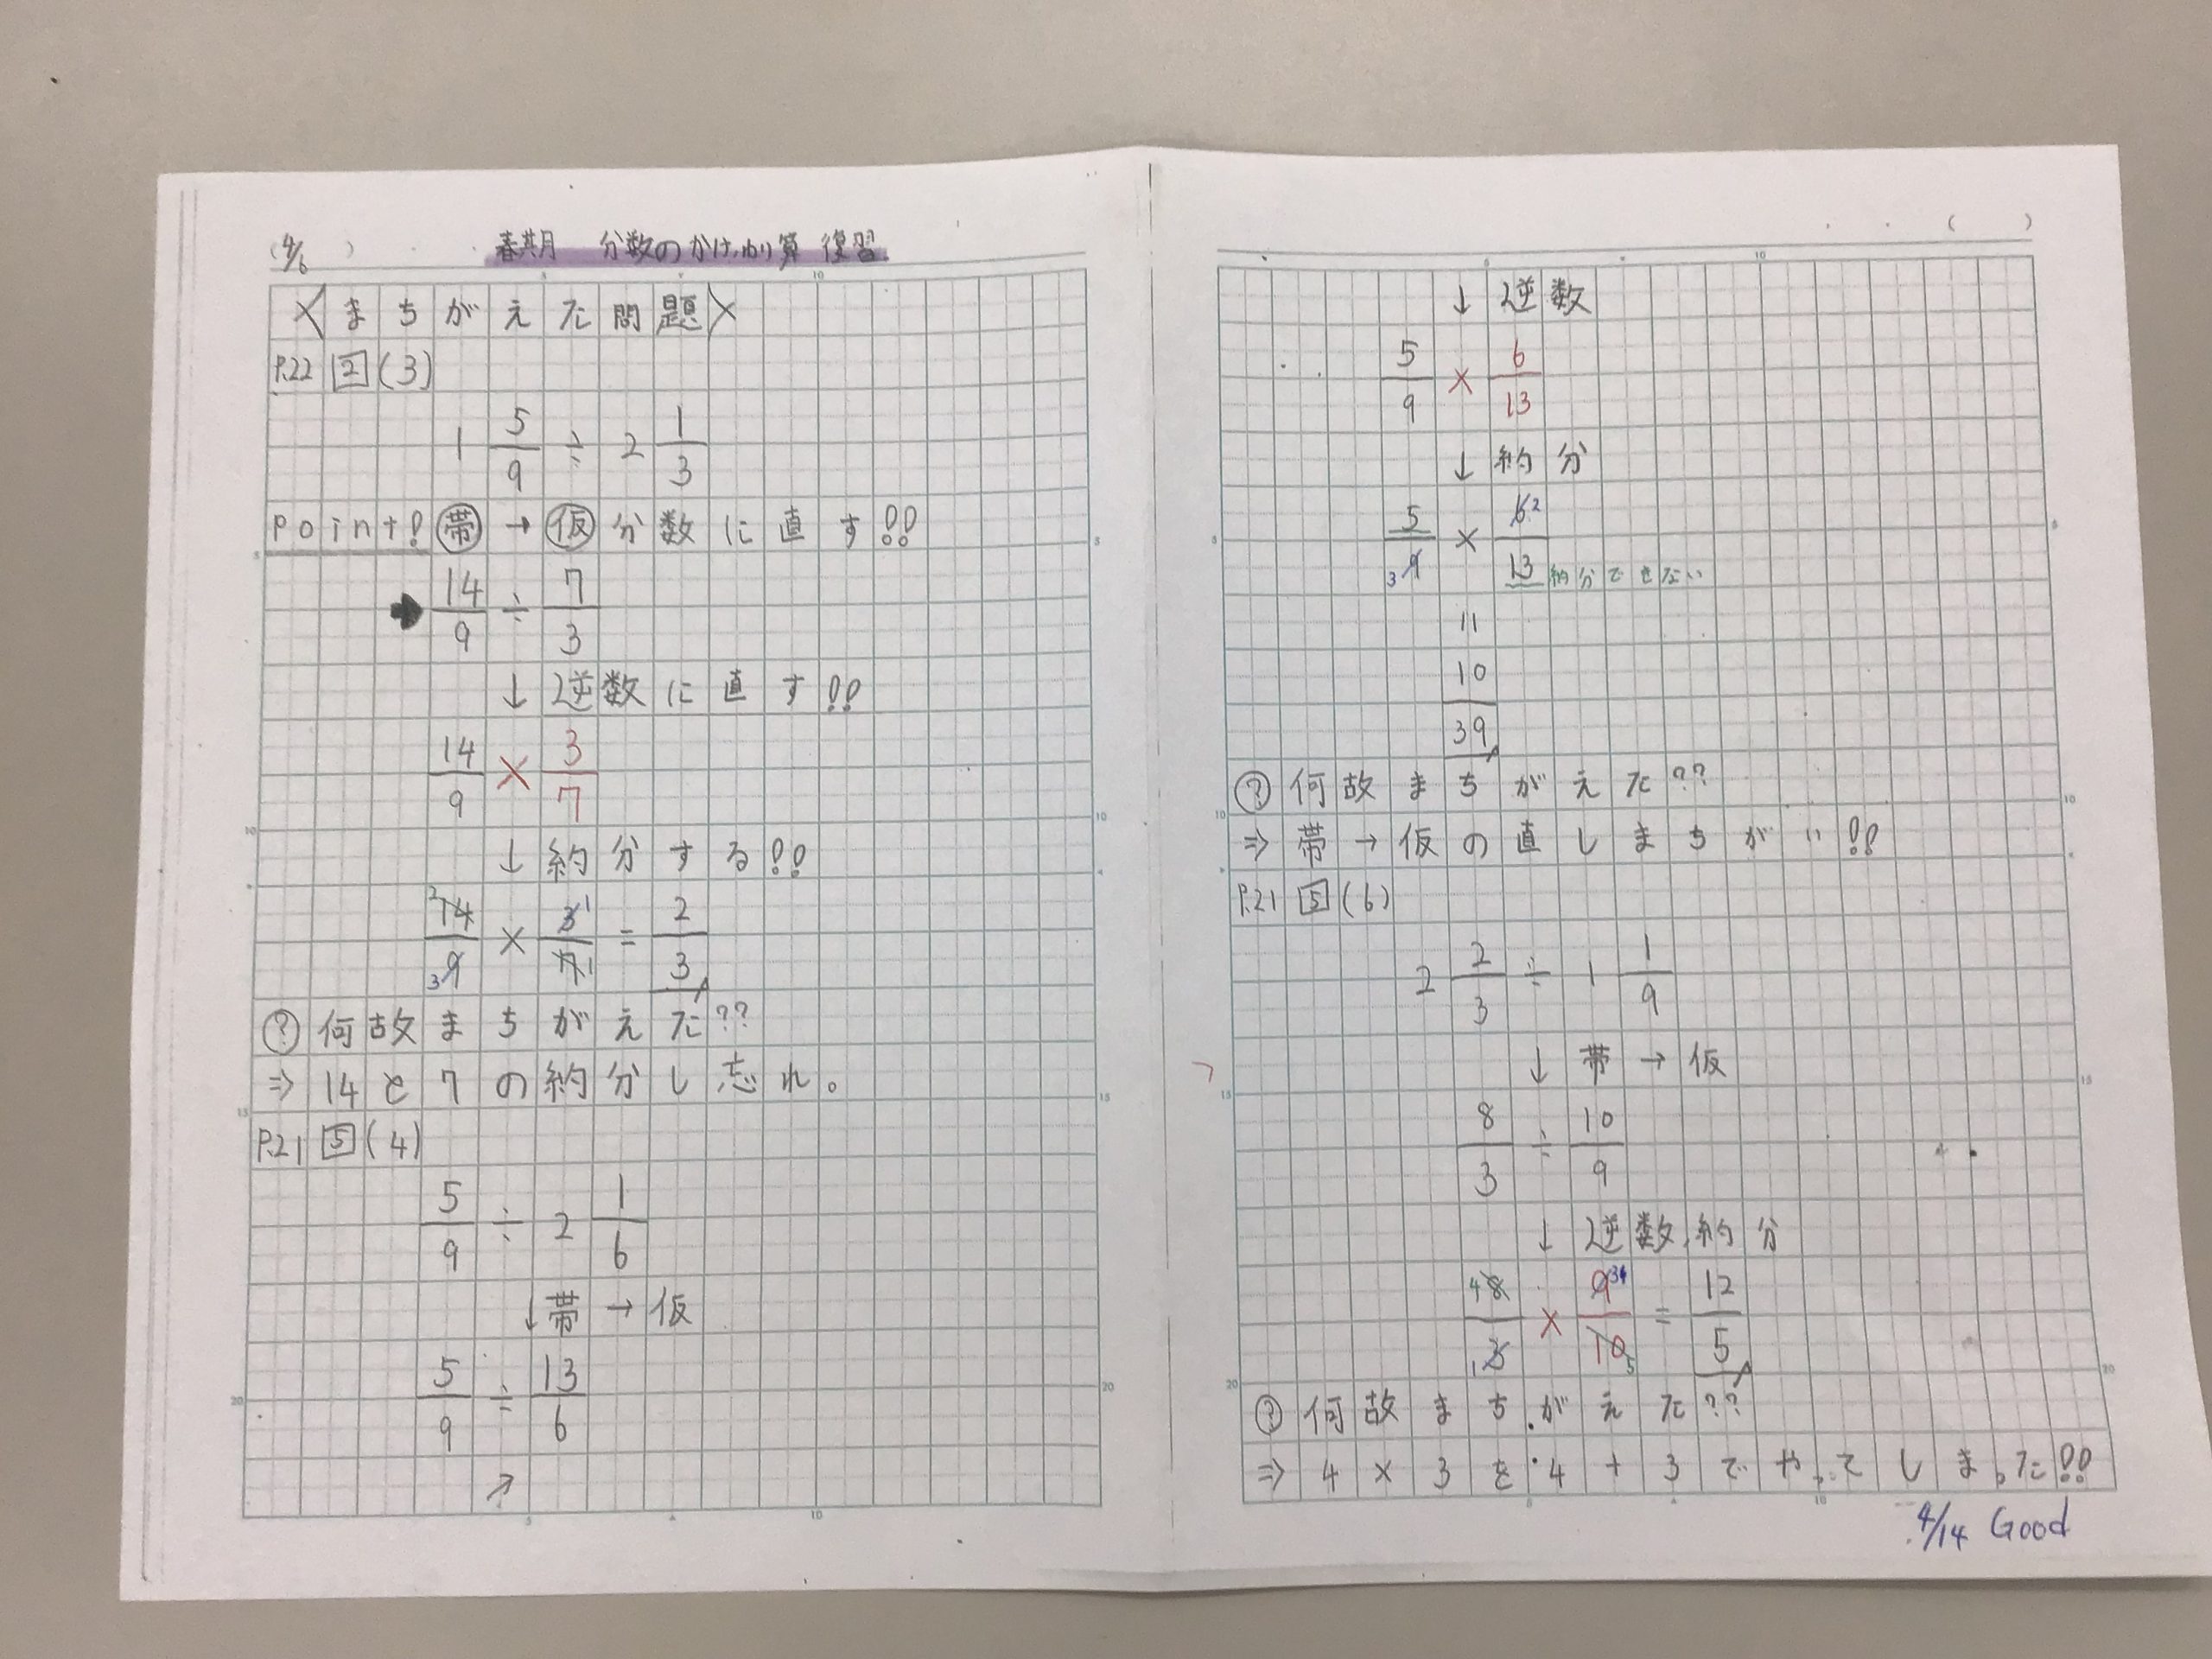 (4/6) 春期 分数のかけ,わり算 復習
×まちがえた問題×
P.22 2 (3)
1 5/9 ÷ 2 1/3
Point! 帯→仮分数に直す!!
➡ 14/9 ÷ 7/3
↓逆数に直す!!
14/9 × 3/7
↓約分する!!
2 14/3 9 × 3 1/7 1 = 2/3
? 何故まちがえた??
⇒14と7の約分し忘れ。
P.21 5 (4)
5/9 ÷ 2 1/6
↓帯→仮
5/9 ÷ 13/6
↗
( )
↓逆数
5/9 × 6/13
↓約分
5/3 9 × 6 2/13 約分できない
11
10/39
? 何故まちがえた??
⇒帯→仮の直しまちがい!!
P.21 5 (6)
2 2/3 ÷ 1 1/9
↓帯→仮
8/3 ÷ 10/9
↓逆数,約分
4 8/1 3 × 9 3/10 5 = 12/5
? 何故まちがえた??
⇒4×3を4+3でやってしまった!!
4/14 Good